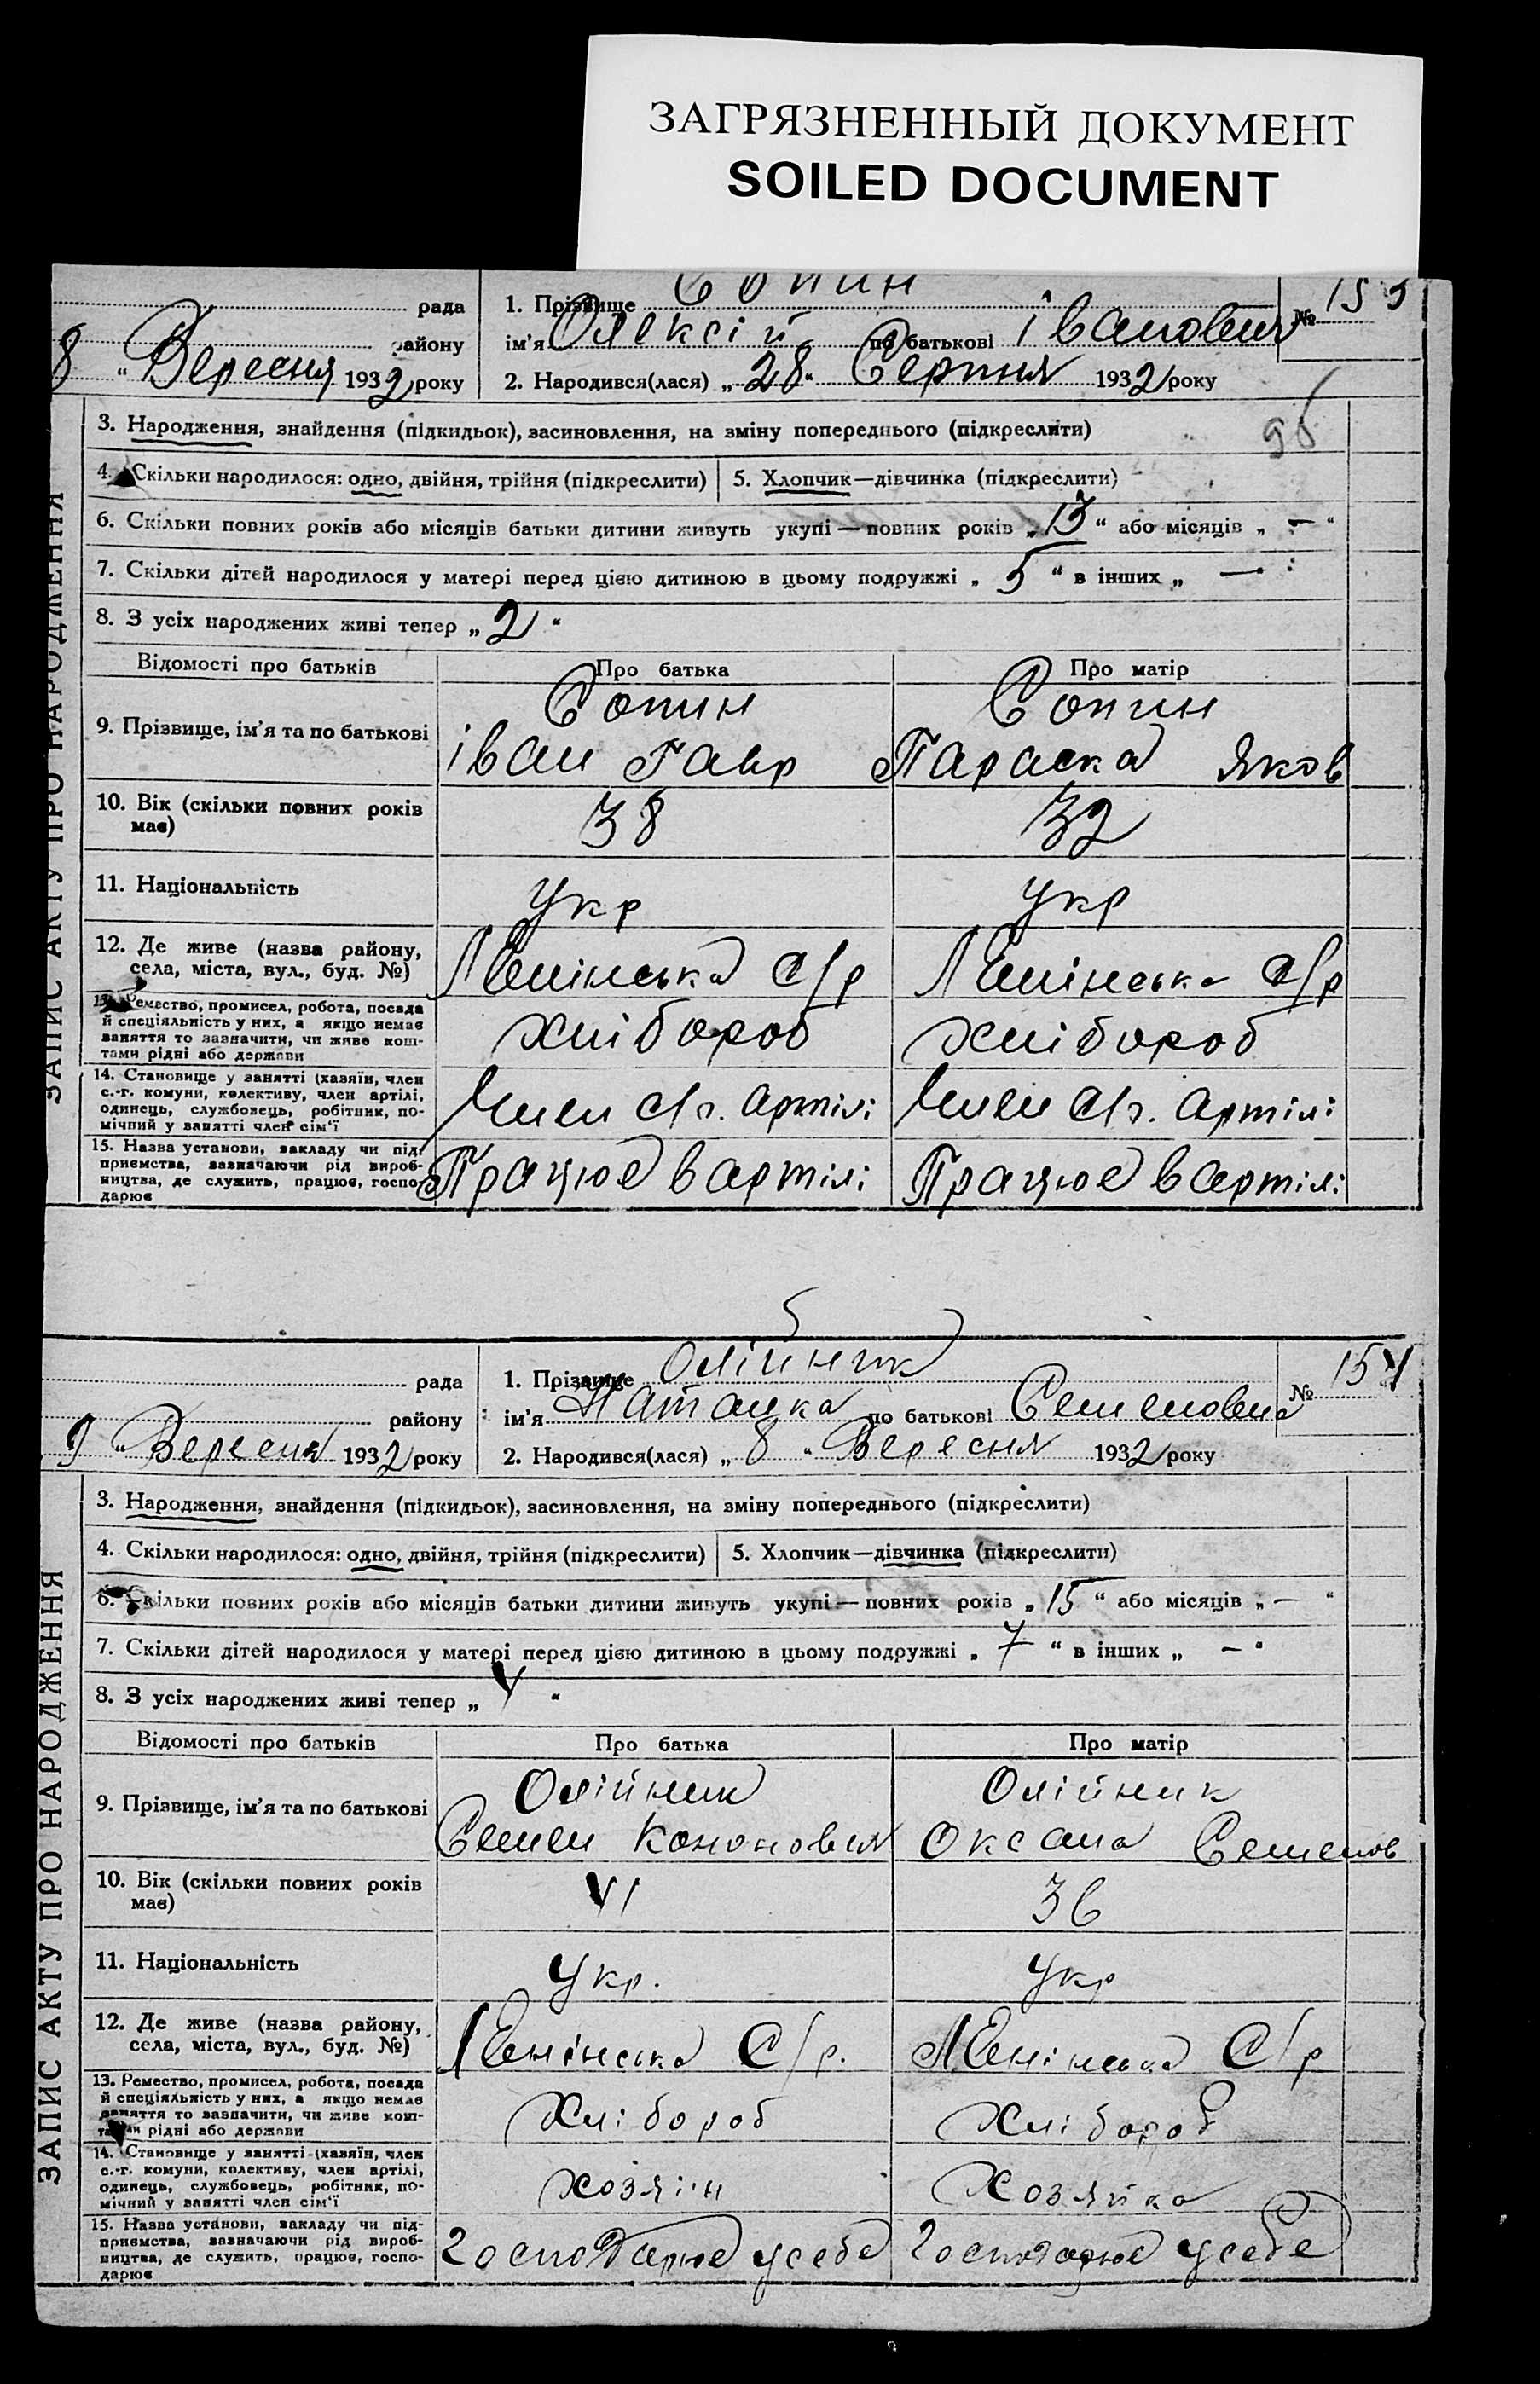 ЗАГРЯЗНЕННЫЙ ДОКУМЕНТ
SOILED DOCUMENT
рада
району
8 " Вересня 1932 року
1. Прізвище Сопин
ім'я Олексій по батькові іванович
№ 153
2. Народився(лася) „ 28 " Серпня 1932 року
3. Народження, знайдення (підкидьок), засиновлення, на зміну попереднього (підкреслити)
4. Скільки народилося: одно, двійня, трійня (підкреслити) 5. Хлопчик—дівчинка (підкреслити)
6. Скільки повних років або місяців батьки дитини живуть укупі — повних років „ 13 " або місяців „ — "
7. Скільки дітей народилося у матері перед цією дитиною в цьому подружжі „ 5 " в інших „ — "
8. З усіх народжених живі тепер „ 2 "
Відомості про батьків Про батька Про матір
9. Прізвище, ім'я та по батькові
Сопин
іван Гавр
Сопин
Параска Яков
10. Вік (скільки повних років
має)
38
32
11. Національність
укр
укр
12. Де живе (назва району,
села, міста, вул., буд. №)
Ленінська с/р
Ленінська с/р
13. Ремество, промисел, робота, посада
й спеціяльність у них, а якщо немає
заняття то зазначити, чи живе кош-
тами рідні або держави
хлібороб
хлібороб
14. Становище у занятті (хазяїн, член
с.-г. комуни, колективу, член артілі,
одинець, службовець, робітник, по-
мічний у занятті член сім'ї
Член с/г. артілі
Член с/г. артілі
15. Назва установи, закладу чи під-
приємства, зазначаючи рід вироб-
ництва, де служить, працює, госпо-
дарює
Працює в артілі
Працює в артілі
ЗАПИС АКТУ ПРО НАРОДЖЕННЯ
рада
району
9 " Вересня 1932 року
1. Прізвище Олійник
ім'я Наталка по батькові Семеновна
№ 154
2. Народився(лася) „ 8 " Вересня 1932 року
3. Народження, знайдення (підкидьок), засиновлення, на зміну попереднього (підкреслити)
4. Скільки народилося: одно, двійня, трійня (підкреслити) 5. Хлопчик—дівчинка (підкреслити)
6. Скільки повних років або місяців батьки дитини живуть укупі — повних років „ 15 " або місяців „ — "
7. Скільки дітей народилося у матері перед цією дитиною в цьому подружжі „ 7 " в інших „ — "
8. З усіх народжених живі тепер „ 4 "
Відомості про батьків Про батька Про матір
9. Прізвище, ім'я та по батькові
Олійник
Семен Кононович
Олійник
Оксана Семенов
10. Вік (скільки повних років
має)
41
36
11. Національність
укр.
укр
12. Де живе (назва району,
села, міста, вул., буд. №)
Ленінська С/р.
Ленінська С/р
13. Ремество, промисел, робота, посада
й спеціяльність у них, а якщо немає
заняття то зазначити, чи живе кош-
тами рідні або держави
Хлібороб
Хлібороб
14. Становище у занятті (хазяїн, член
с.-г. комуни, колективу, член артілі,
одинець, службовець, робітник, по-
мічний у занятті член сім'ї
хозяїн
Хозяйка
15. Назва установи, закладу чи під-
приємства, зазначаючи рід вироб-
ництва, де служить, працює, госпо-
дарює
Господарює у себе
Господарює у себе
ЗАПИС АКТУ ПРО НАРОДЖЕННЯ